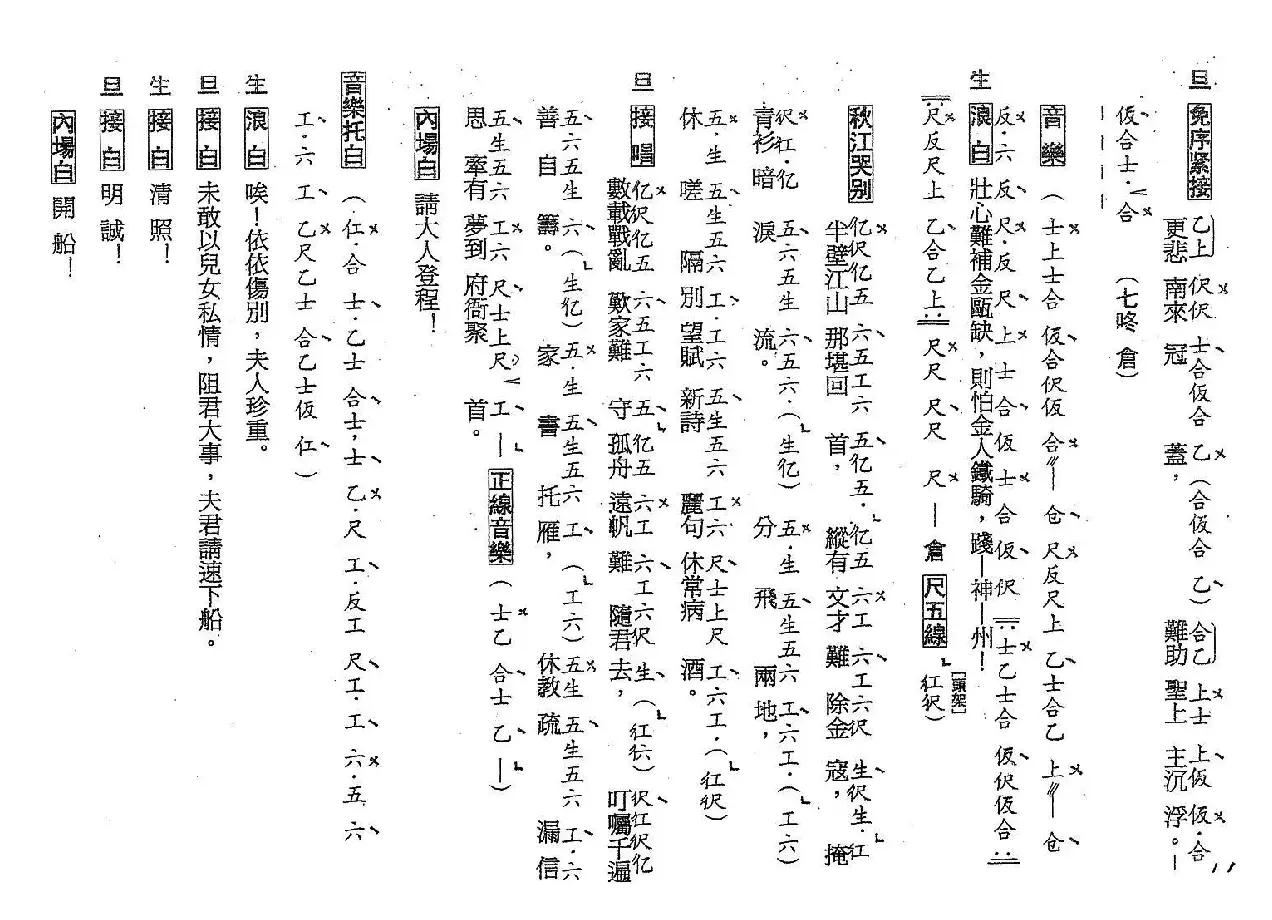 旦 免序紧接 更悲南來冠蓋，難助聖上主沉浮。—
乙上伬伬士合仮合乙（合仮合乙）合乙上士上仮仮·合
仮合士·合（七咚倉）
音樂（士上士合仮合伬仮合〃—仓尺反尺上乙士合乙上〃—仓
反·六反尺·反尺上士合仮士合仮伬士乙士合仮伬仮合
生 浪白 壯心難補金甌缺，則怕金人鐵騎，踐—神—州！
尺反尺上乙合乙上尺尺尺尺尺—倉 尺五線（紅伬）
[頭架]
秋江哭别 半壁江山那堪回首，縱有文才難除金寇，掩
亿伬亿五六五工六五亿五·亿五六工六工六伬生伬生·红
青衫暗淚流。分飛兩地，
伬红·亿五六五生六五六·（生亿）五·生五生五六工·六工·（工六）
休嗟隔別望賦新詩麗句休常病酒。
五·生五生五六工·工六五生五六工六尺士上尺工六工·（红伬）
旦 接唱 數載戰亂歎家難守孤舟遠帆難隨君去，叮囑千遍
亿伬亿五六五工六五亿五六工六工六伬生（红伬）伬红伬亿
善自籌。家書托雁，休教疏漏信
五六五生六（生亿）五·生五生五六工（工六）五生五生五六工·六
思牽有夢到府衙聚首。— 正線音樂（士乙合士乙—）
五生五六工六尺士上尺工
內場白 請大人登程！
音樂托白（仁·合士·乙士合士，士乙·尺工·反工尺工·工六·五六
工·六工乙尺乙士合乙士仮仁）
生 浪白 唉！依依傷別，夫人珍重。
旦 接白 未敢以兒女私情，阻君大事，夫君請速下船。
生 接白 清照！
旦 接白 明誠！
內場白 開船！